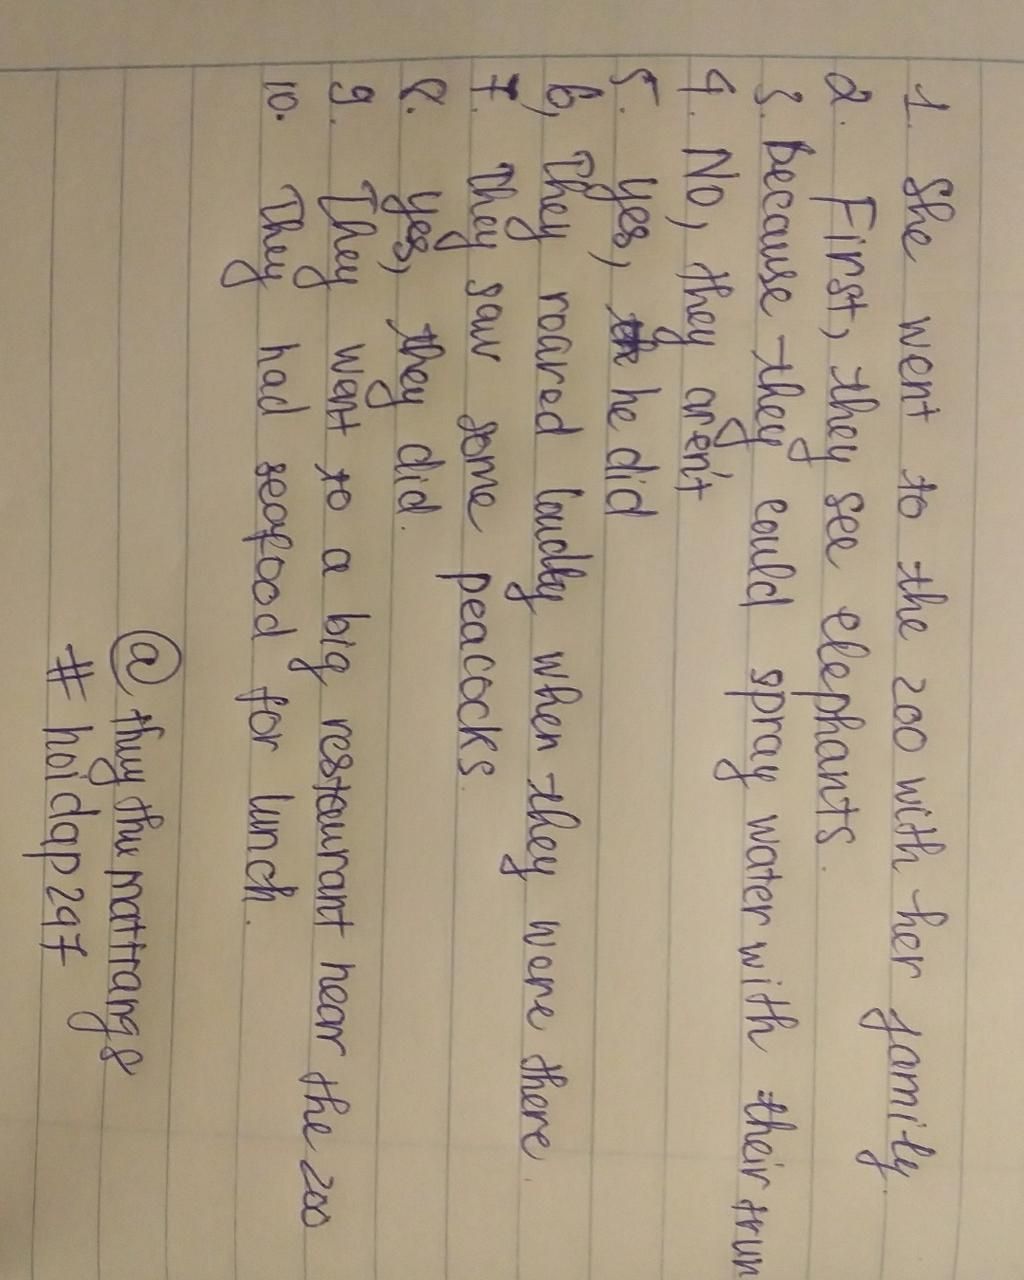 1. She went to the zoo with her family.
2. First, they see elephants.
3. Because they could spray water with their trun
4. No, they aren't
5. yes, he did
6, They roared loudly when they were there.
7. They saw some peacocks.
8. yes, they did.
9. They want to a big restaurant near the zoo
10. They had seafood for lunch.
@ thuy thu mattrang8
# hoidap247